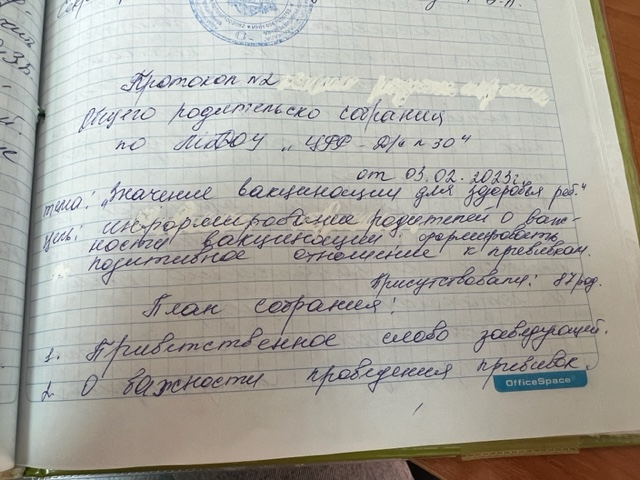 Протокол №2
Общего родительско собрания
по МБДОУ „ЦРР - Д/с №30"
от 03.02.2023г.
тема: „Значение вакцинации для здоровья реб."
цель: информирование родителей о важ-
ности вакцинации формировать
позитивное отношение к прививкам.
Присутствовали: 87 род.
План собрания:
1. Приветственное слово заведующей.
2. О важности проведения прививок.
OfficeSpace